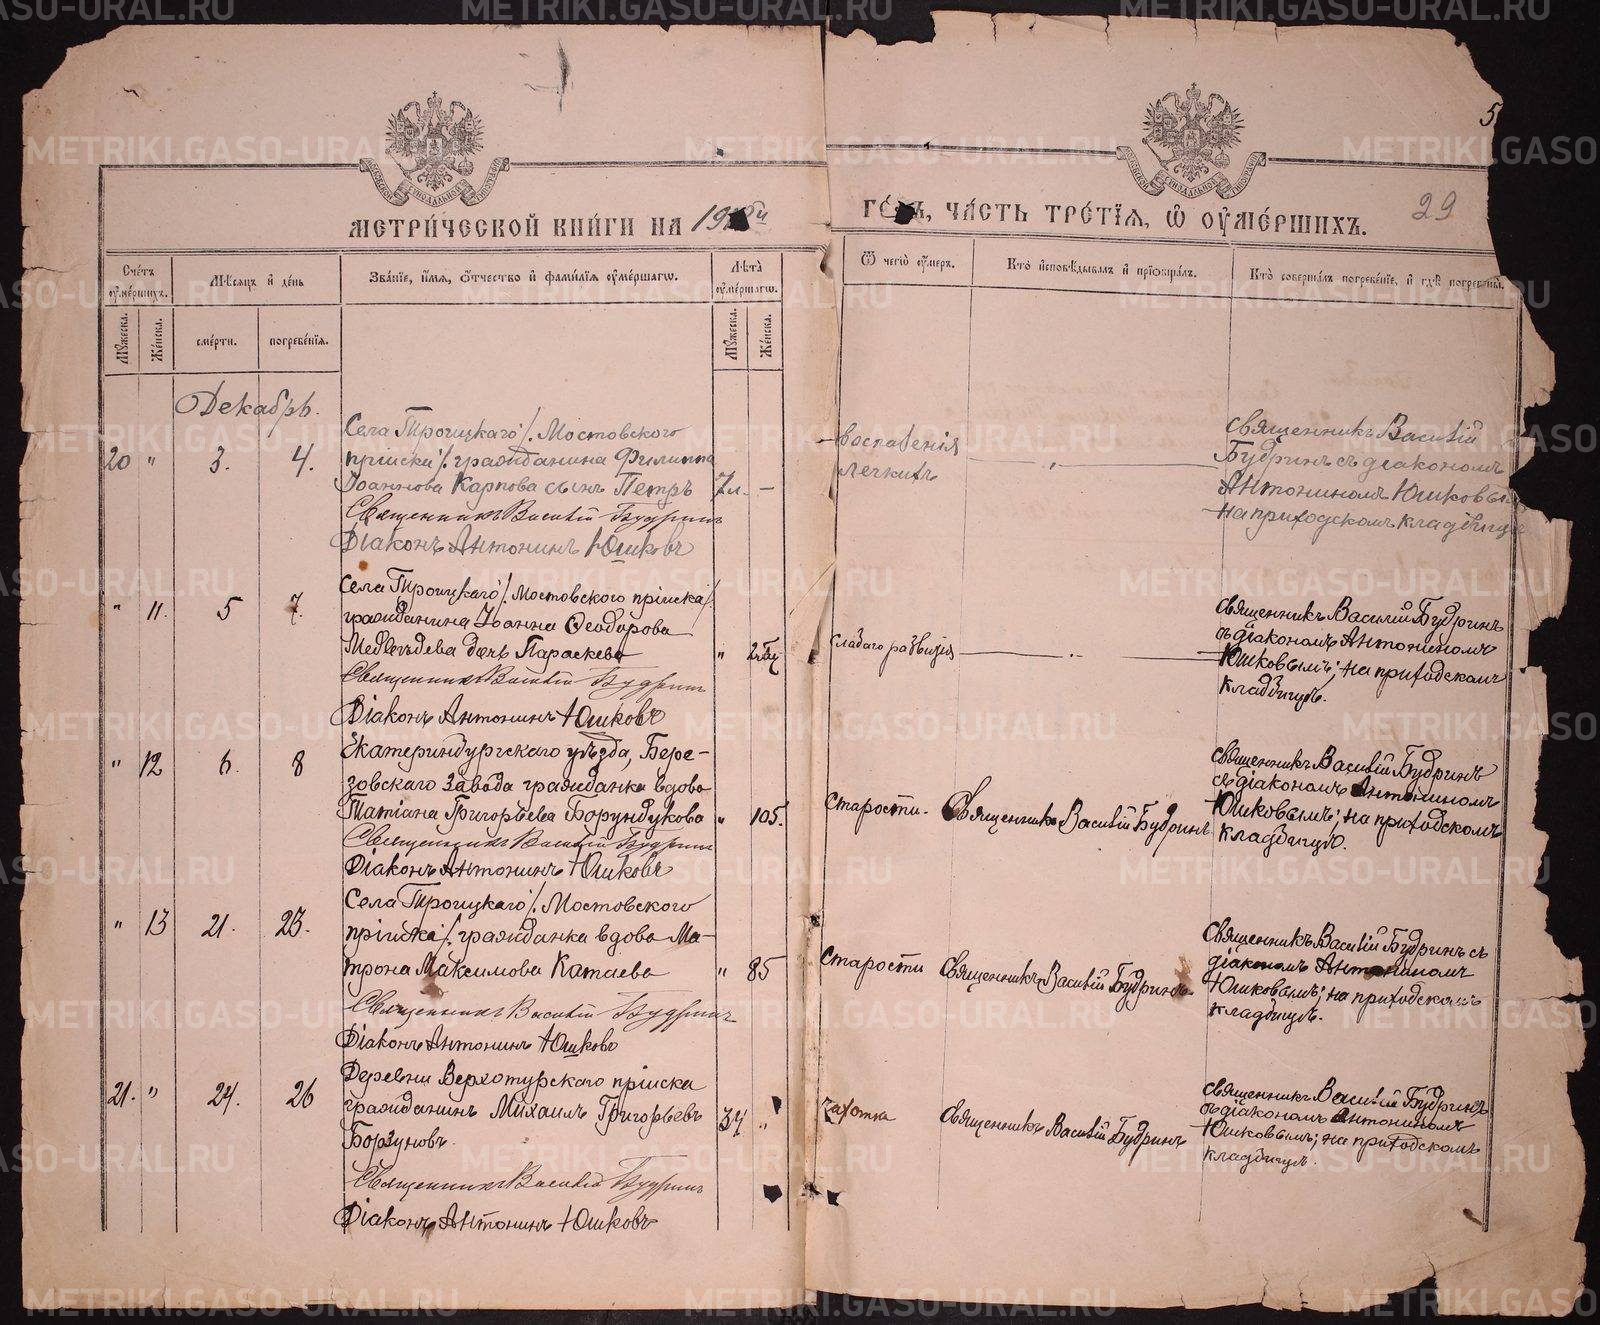 МЕТРИ́ЧЕСКОЙ КНИ́ГИ НА
ЧА́СТЬ ТРЕ́ТІЯ, Ѿ ОУ҆МЕ́РШИХЪ.
5
29
Сче́тъ оу҆ме́ршихъ.
Мѣ́сяцъ и҆ де́нь
Зва́нїе, и҆́мя, ѻ҆́тчество и҆ фами́лїя оу҆ме́ршагѡ.
Лѣ́та оу҆ме́ршагѡ.
Ѿ чегѡ̀ оу҆́меръ.
Кто̀ и҆сповѣ́дывалъ и҆ прїѡбща́лъ.
Кто̀ соверша́лъ погребе́нїе, и҆ гдѣ̀ погребены̀.
Му́жеска.
Же́нска.
сме́рти.
погребе́нїя.
Му́жеска.
Же́нска.
Декабрь.
20 " 3. 4.
Села Троицкаго /. Мостовского
пріиска /. гражданина Филиппа
Іоаннова Карпова сынъ Петръ 7л. —
Священникъ Василій Будринъ
Діаконъ Антонинъ Юшковъ
воспаленія
легкихъ
Священникъ Василій
Будринъ съ діакономъ
Антониномъ Юшковым
на приходскомъ кладбище
" 11. 5 7.
Села Троицкаго /. Мостовского пріиска /.
гражданина Іоанна Ѳеодорова
Медвѣдева дочь Параскева "
Священникъ Василій Будринъ
Діаконъ Антонинъ Юшковъ
слабаго развитія
Священникъ Василій Будринъ
съ діакономъ Антониномъ
Юшковымъ; на приходскомъ
кладбищѣ.
" 12 6. 8
Екатеринбургскаго уѣзда, Бере-
зовскаго завода гражданка вдова
Татіана Григорьева Борундукова " 105.
Священникъ Василій Будринъ
Діаконъ Антонинъ Юшковъ
Старости. Священникъ Василій Будринъ
Священникъ Василій Будринъ
съ діакономъ Антониномъ
Юшковымъ; на приходскомъ
кладбищѣ.
" 13 21. 23.
Села Троицкаго /. Мостовского
пріиска /. гражданка вдова Ма-
трона Максимова Катаева " 85
Священникъ Василій Будринъ
Діаконъ Антонинъ Юшковъ
Старости Священникъ Василій Будринъ
Священникъ Василій Будринъ съ
діакономъ Антониномъ
Юшковымъ; на приходскомъ
кладбищѣ.
21. " 24. 26
Деревни Верхотурскаго пріиска
гражданинъ Михаилъ Григорьевъ 34 "
Борзуновъ.
Священникъ Василій Будринъ
Діаконъ Антонинъ Юшковъ
чахотка Священникъ Василій Будринъ
Священникъ Василій Будринъ
съ діакономъ Антониномъ
Юшковымъ; на приходскомъ
кладбищѣ.
METRIKI.GASO-URAL.RU